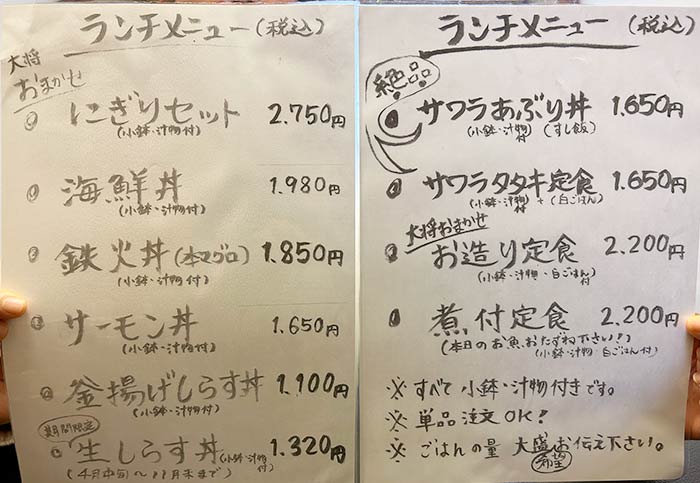 ランチメニュー(税込)
大将
おまかせ
にぎりセット 2.750円
(小鉢・汁物付)
海鮮丼 1.980円
(小鉢・汁物付)
鉄火丼(本マグロ) 1.850円
(小鉢・汁物付)
サーモン丼 1.650円
(小鉢・汁物付)
釜揚げしらす丼 1.100円
(小鉢・汁物付)
期間限定
生しらす丼(小鉢・汁物付) 1.320円
(4月中旬〜11月末まで)
ランチメニュー(税込)
絶品
サワラあぶり丼 1.650円
(小鉢・汁物付)(すし飯)
サワラタタキ定食 1.650円
(小鉢・汁物付)+(白ごはん)
大将おまかせ
お造り定食 2.200円
(小鉢・汁物・白ごはん付)
煮付定食 2.200円
(本日のお魚、おたずね下さい!)
(小鉢・汁物・白ごはん付)
※すべて小鉢・汁物付きです。
※単品注文OK!
※ごはんの量 大盛希望お伝え下さい。